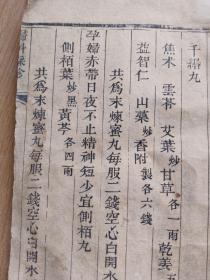 千補丸
焦朮 雲苓 艾葉炒 甘草各一兩 乾姜五
益智仁 山藥炒 香附製 各六錢
共爲末煉蜜丸每服二錢空心白開水
孕婦赤帶日夜不止精神短少宜側栢丸
側栢葉炒黑 黃芩各四兩
共爲末煉蜜丸每服二錢空心白開水